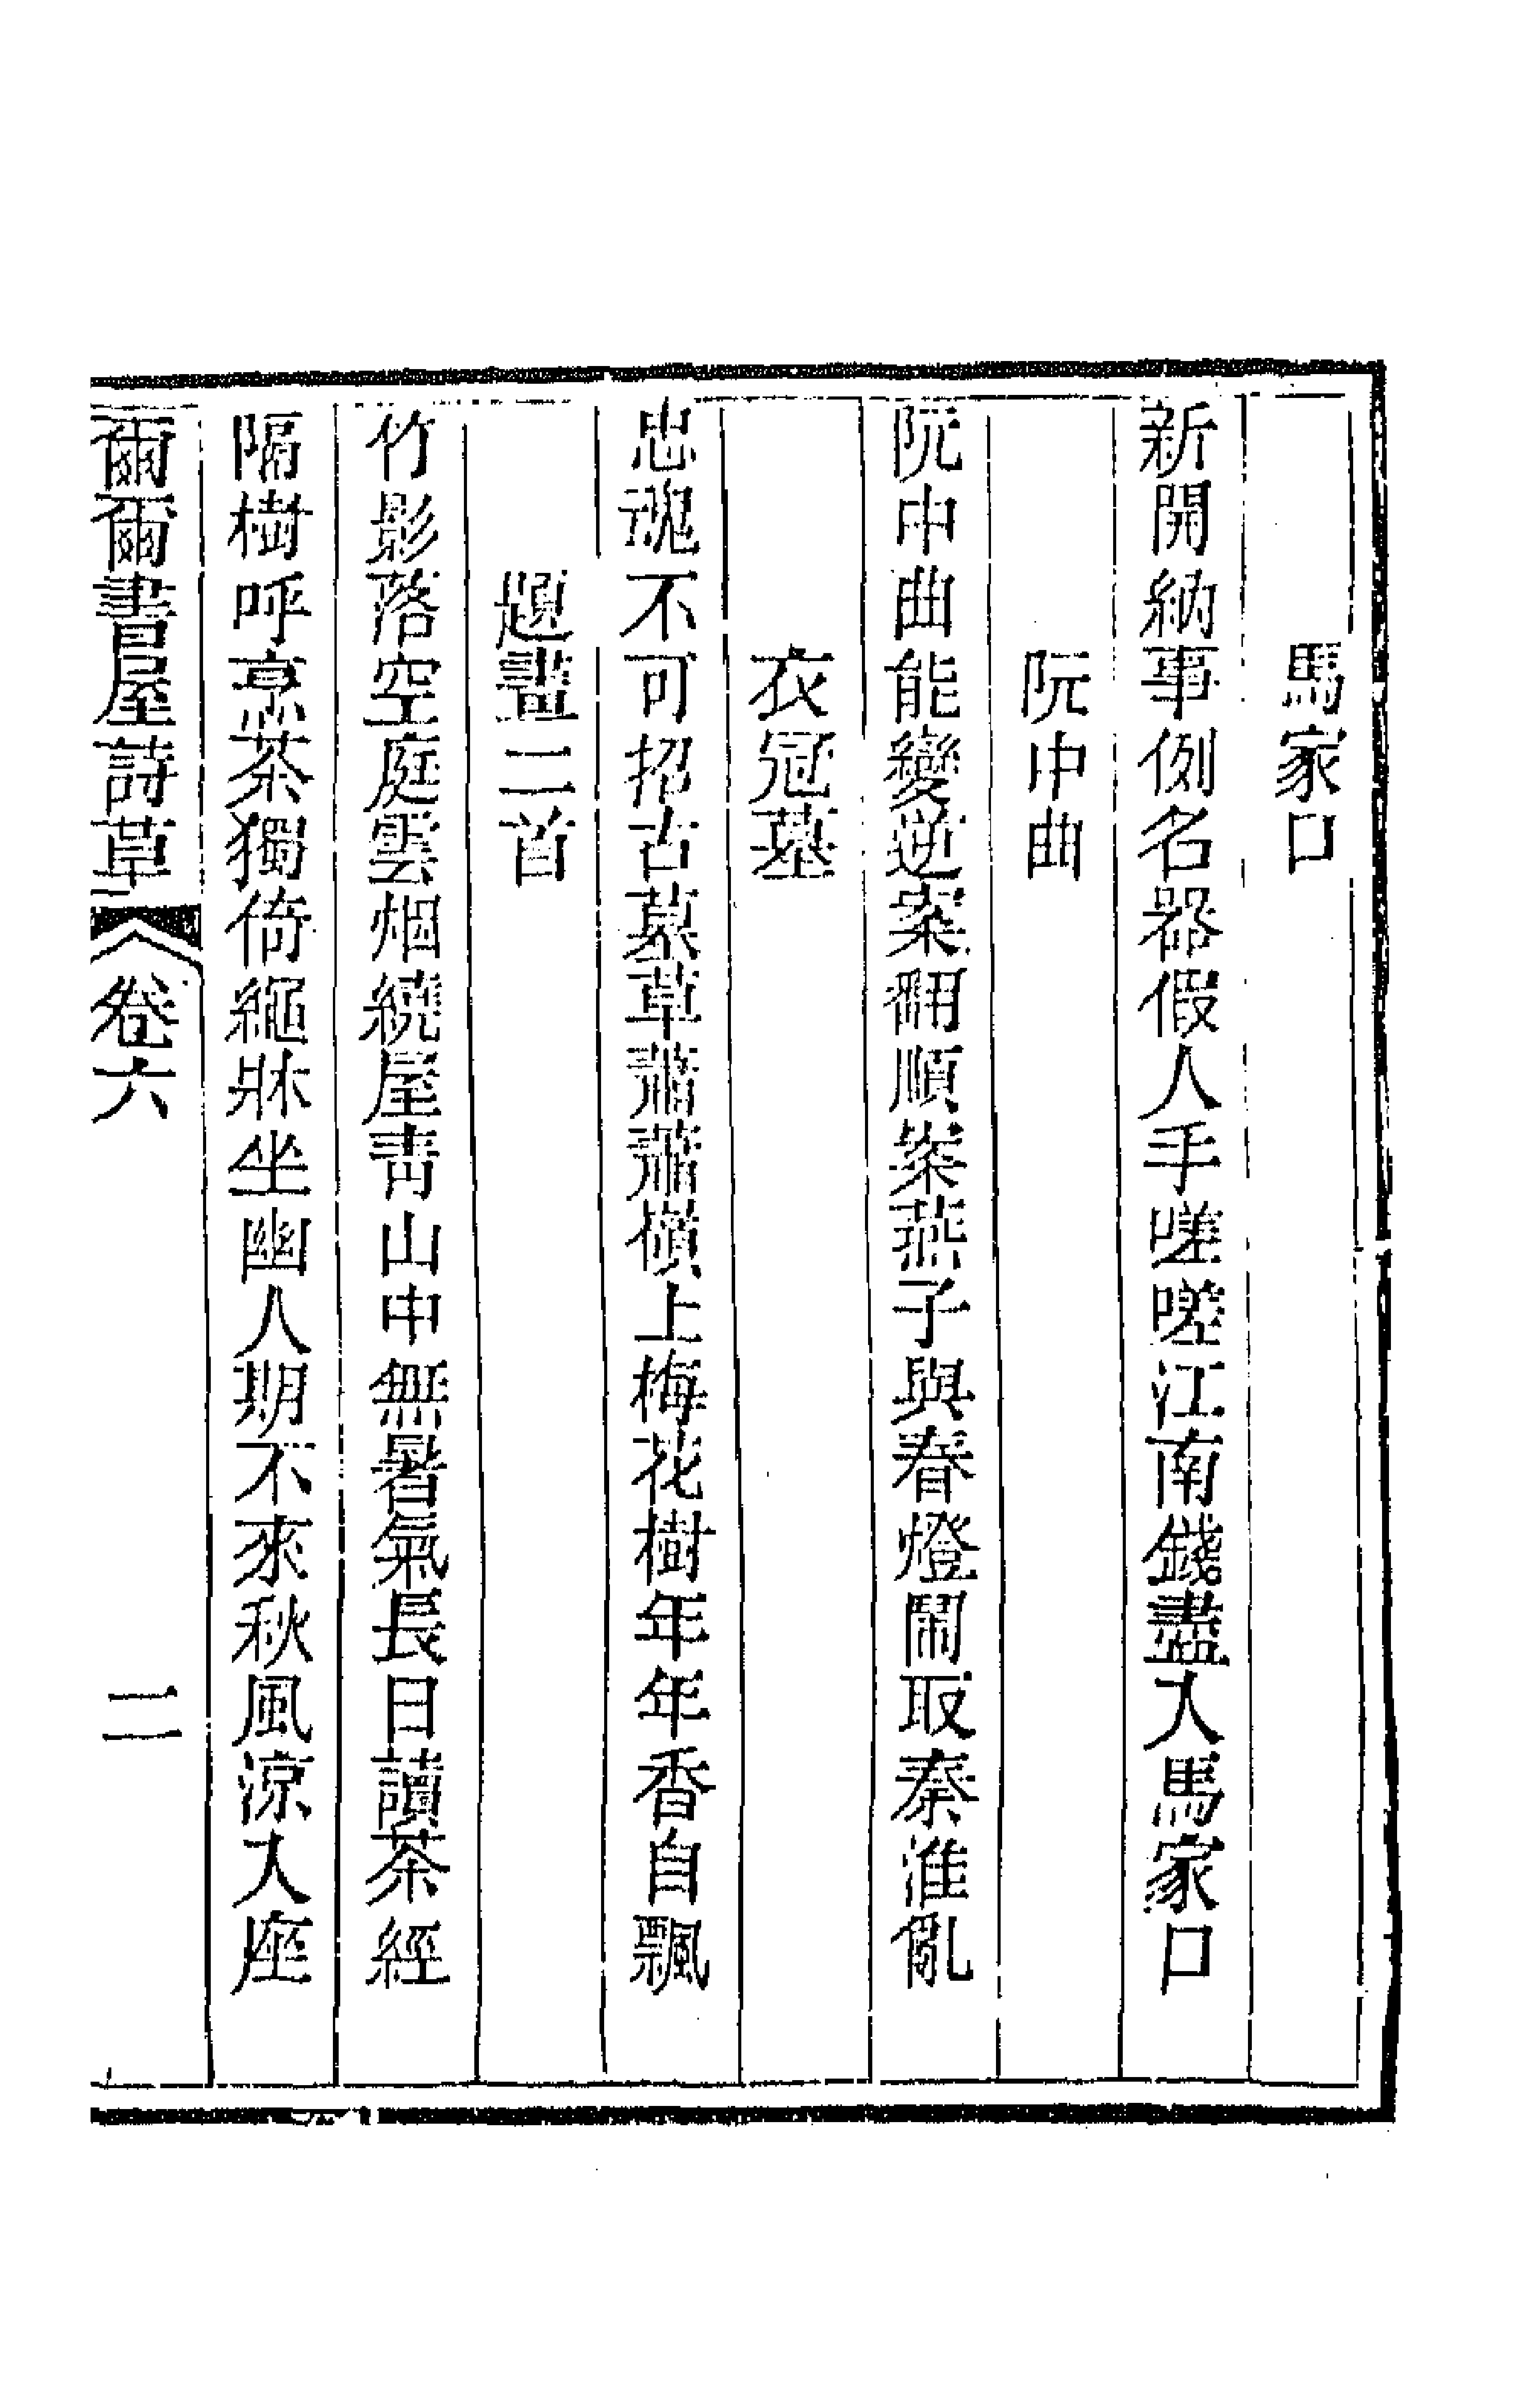 馬家口
新開納事例名器假人手嗟嗟江南錢盡入馬家口
阮中曲
阮中曲能變逆案翻順案燕子與春燈鬧取秦淮亂
衣冠墓
忠魂不可招古墓草蕭蕭嶺上梅花樹年年香自飄
題畫二首
竹影落空庭雲烟繞屋青山中無暑氣長日讀茶經
隔樹呼烹茶獨倚繩牀坐幽人期不來秋風涼入座
爾爾書屋詩草 卷六 二